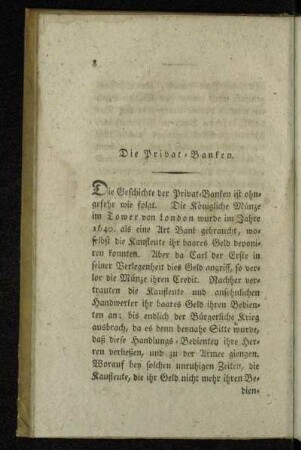 8
Die Privat-Banken.
Die Geschichte der Privat-Banken ist ohn-
gefehr wie folgt. Die Königliche Münze
im Tower von London wurde im Jahre
1640. als eine Art Bank gebraucht, wo-
selbst die Kaufleute ihr baares Geld deponi-
ren konnten. Aber da Carl der Erste in
seiner Verlegenheit dies Geld angriff, so ver-
lor die Münze ihren Credit. Nachher ver-
trauten die Kaufleute und ansehnlichen
Handwerker ihr baares Geld ihren Bedien-
ten an: bis endlich der Bürgerliche Krieg
ausbrach, da es denn beynahe Sitte wurde,
daß diese Handlungs-Bedienten ihre Her-
ren verließen, und zu der Armee giengen.
Worauf bey solchen unruhigen Zeiten, die
Kaufleute, die ihr Geld nicht mehr ihren Be-
dien-